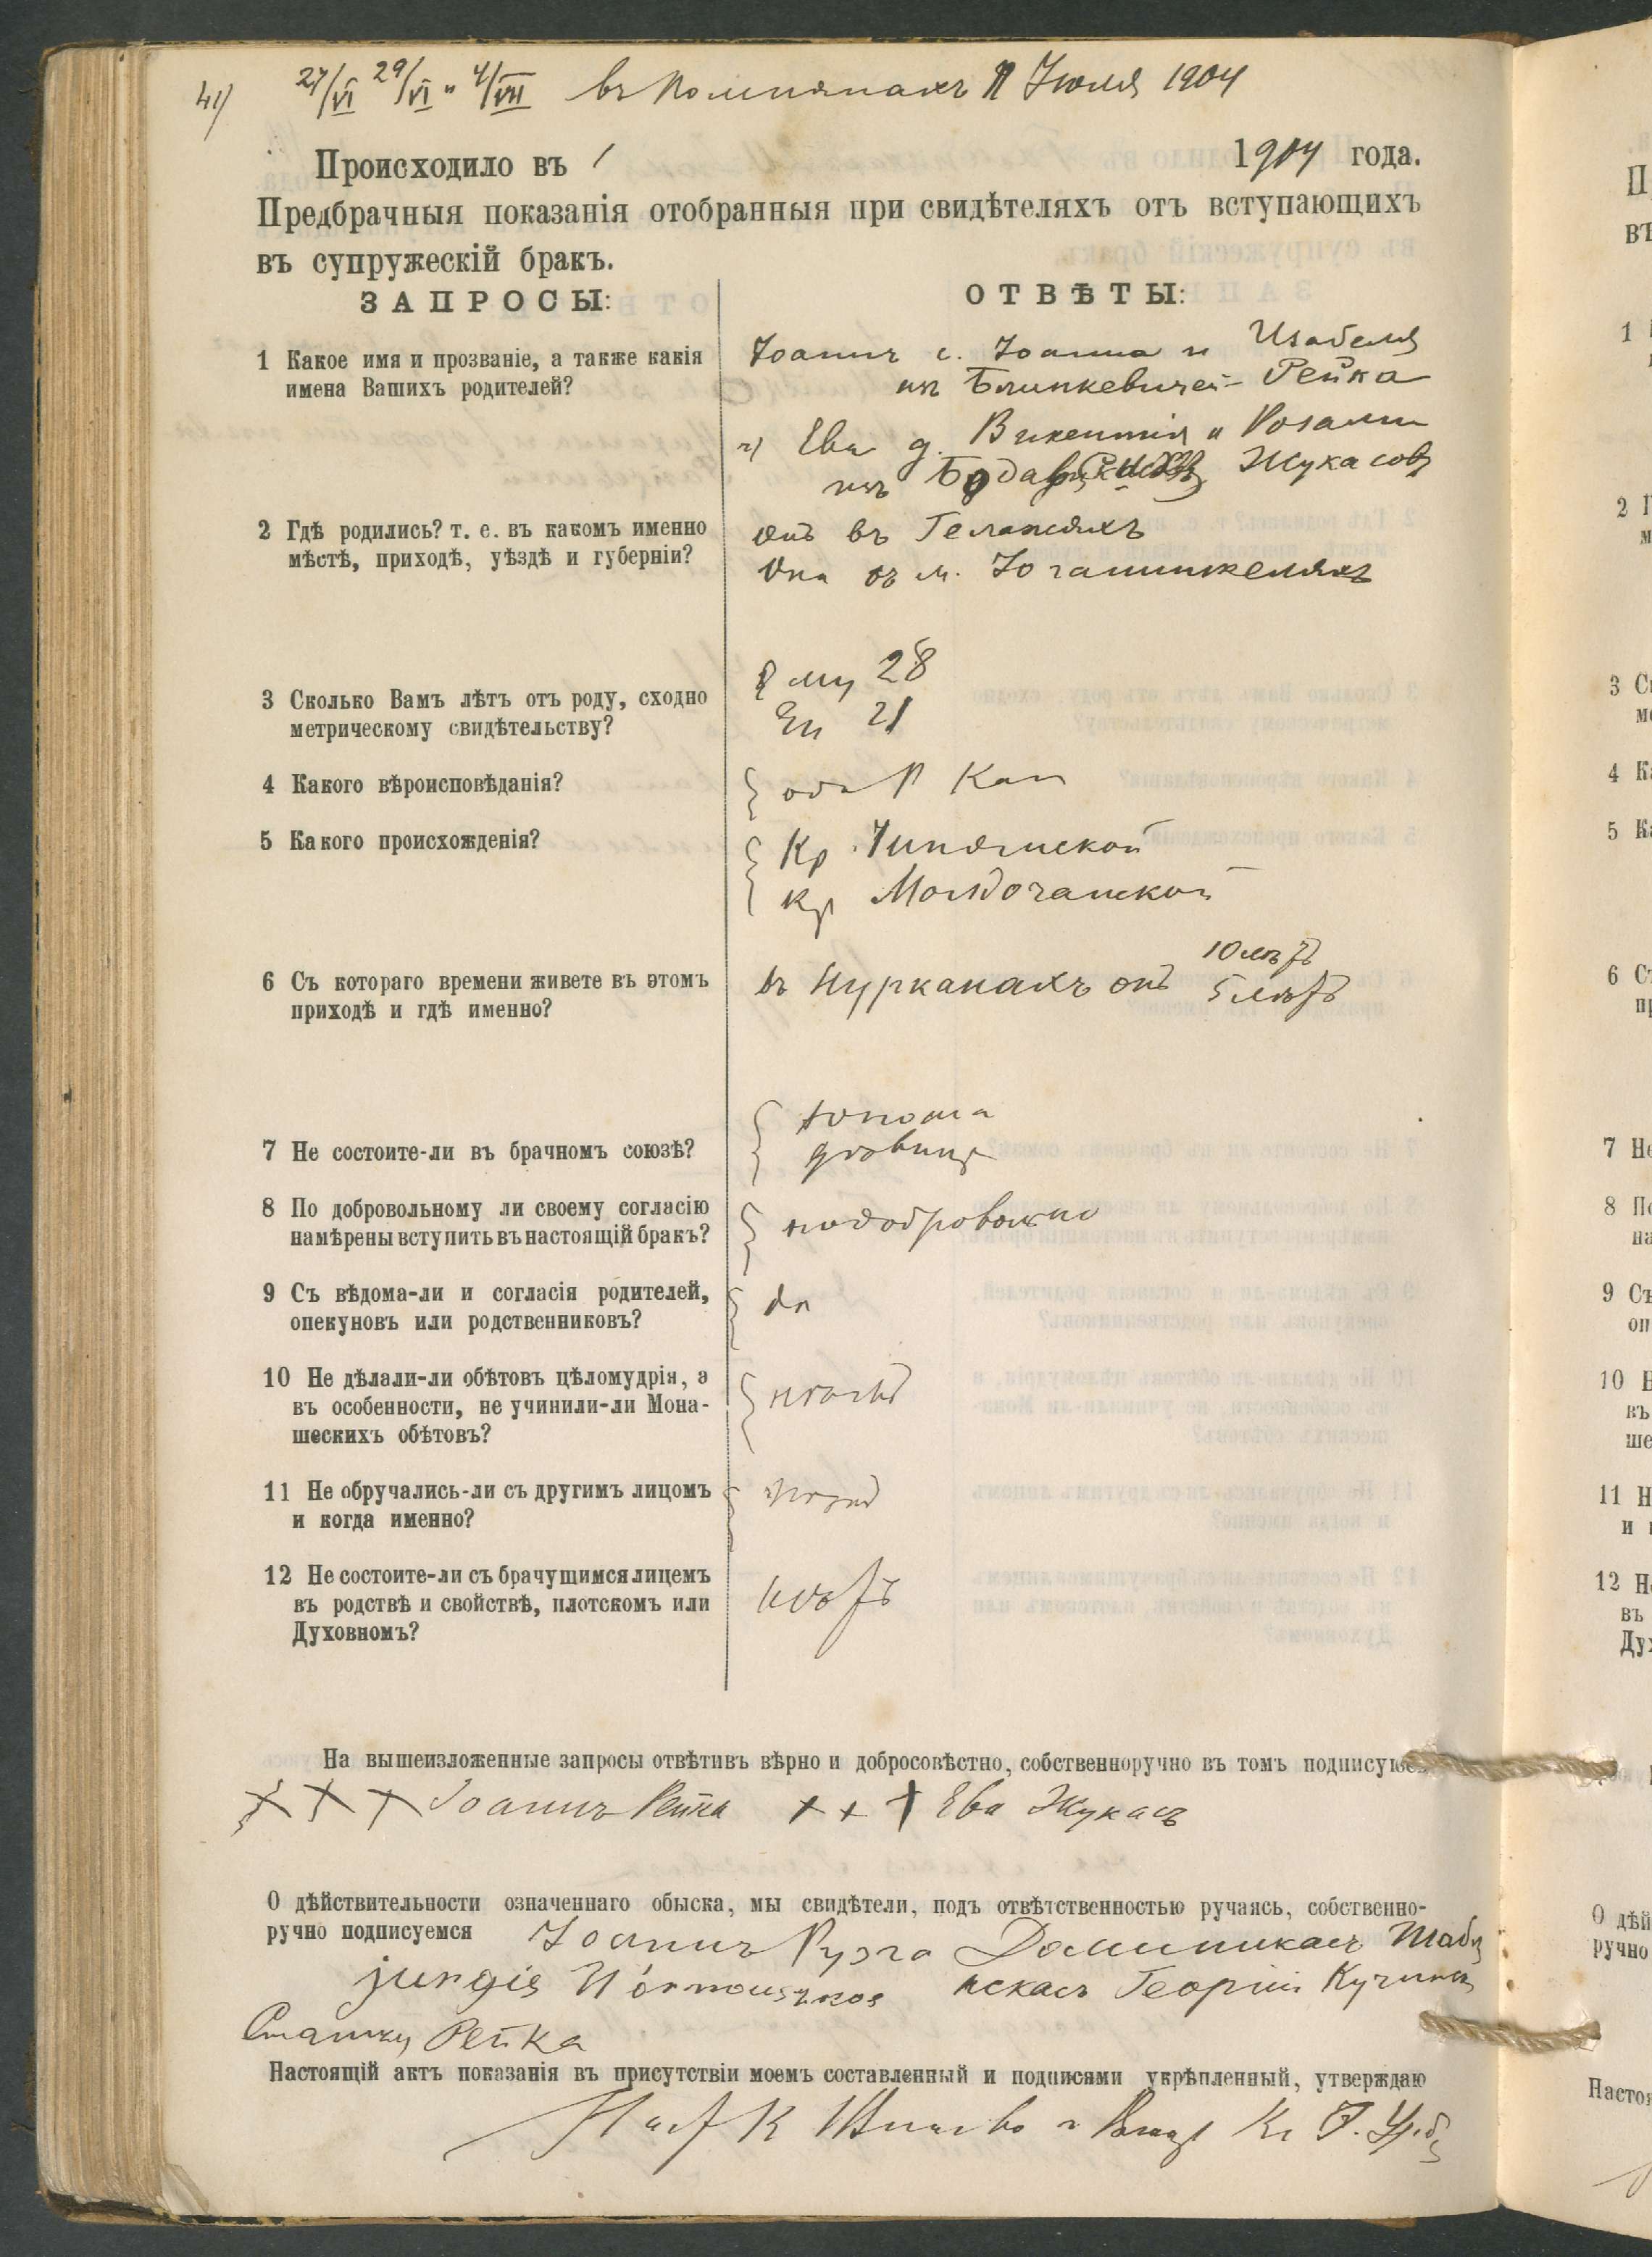 41)
27/VI 29/VI и 4/VII въ 11 Іюля 1904
Происходило въ 1904 года.
Предбрачныя показанія отобранныя при свидѣтеляхъ отъ вступающихъ
въ супружескій бракъ.
ЗАПРОСЫ: ОТВѢТЫ:
1 Какое имя и прозваніе, а также какія
имена Вашихъ родителей?
Іоаннъ с. Іоанна и Изабелы
изъ Блинкевичей Рейка
и Ева д. Викентія и Розалии
изъ Жукасовъ
2 Гдѣ родились? т. е. въ какомъ именно
мѣстѣ, приходѣ, уѣздѣ и губерніи?
Онъ въ Гелажяхъ
Она въ м. Іоганишкеляхъ
3 Сколько Вамъ лѣтъ отъ роду, сходно
метрическому свидѣтельству?
Ему 28
Ей 21
4 Какого вѣроисповѣданія?
оба Р Кат
5 Какого происхожденія?
Кр.
Кр
6 Съ котораго времени живете въ этомъ
приходѣ и гдѣ именно?
10 лѣтъ
въ Нурканахъ онъ 5 лѣтъ
7 Не состоите-ли въ брачномъ союзѣ?
юноша
дѣвица
8 По добровольному ли своему согласію
намѣрены вступить въ настоящій бракъ?
подобровольно
9 Съ вѣдома-ли и согласія родителей,
опекуновъ или родственниковъ?
да
10 Не дѣлали-ли обѣтовъ цѣломудрія, а
въ особенности, не учинили-ли Мона-
шескихъ обѣтовъ?
нѣтъ
11 Не обручались-ли съ другимъ лицомъ
и когда именно?
нѣтъ
12 Не состоите-ли съ брачущимся лицемъ
въ родствѣ и свойствѣ, плотскомъ или
Духовномъ?
нѣтъ
На вышеизложенные запросы отвѣтивъ вѣрно и добросовѣстно, собственноручно въ томъ подписуюсь
+ + + Іоаннъ Рейка + + + Ева Жукасъ
О дѣйствительности означеннаго обыска, мы свидѣтели, подъ отвѣтственностью ручаясь, собственно-
ручно подписуемся Іоаннъ Доминикасъ
jurgis Георгій
Рейка
Настоящій актъ показанія въ присутствіи моемъ составленный и подписями укрѣпленный, утверждаю